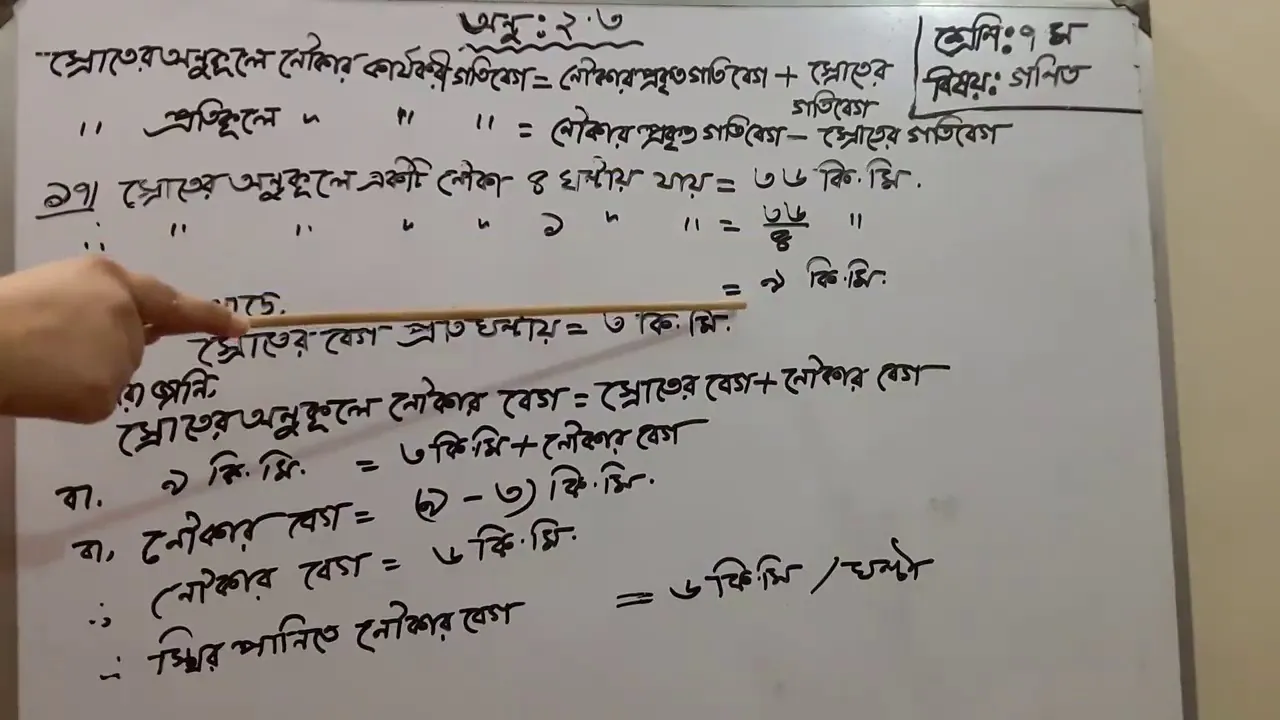 অনু: ২.৩
শ্রেণি: ৭ম
বিষয়: গণিত
স্রোতের অনুকূলে নৌকার কার্যকরী গতিবেগ = নৌকার প্রকৃত গতিবেগ + স্রোতের গতিবেগ
" প্রতিকূলে " " " = নৌকার প্রকৃত গতিবেগ - স্রোতের গতিবেগ
১৭| স্রোতের অনুকূলে একটি নৌকা ৪ ঘন্টায় যায় = ৩৬ কি.মি.
∴ " " " " ১ " " = ৩৬/৪ "
= ৯ কি.মি.
স্রোতের বেগ প্রতি ঘন্টায় = ৩ কি.মি.
জানি,
স্রোতের অনুকূলে নৌকার বেগ = স্রোতের বেগ + নৌকার বেগ
বা, ৯ কি.মি. = ৩ কি.মি + নৌকার বেগ
বা, নৌকার বেগ = (৯ - ৩) কি.মি.
∴ নৌকার বেগ = ৬ কি.মি.
∴ স্থির পানিতে নৌকার বেগ = ৬ কি.মি / ঘন্টা